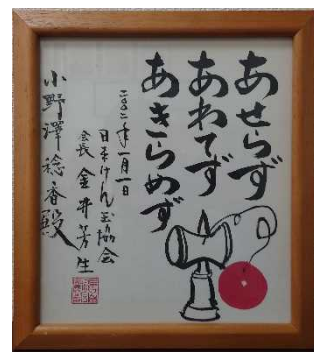 あせらず
あわてず
あきらめず
二〇二一年一月一日
日本けん玉協会
会長 金井芳生
小野澤稔香殿